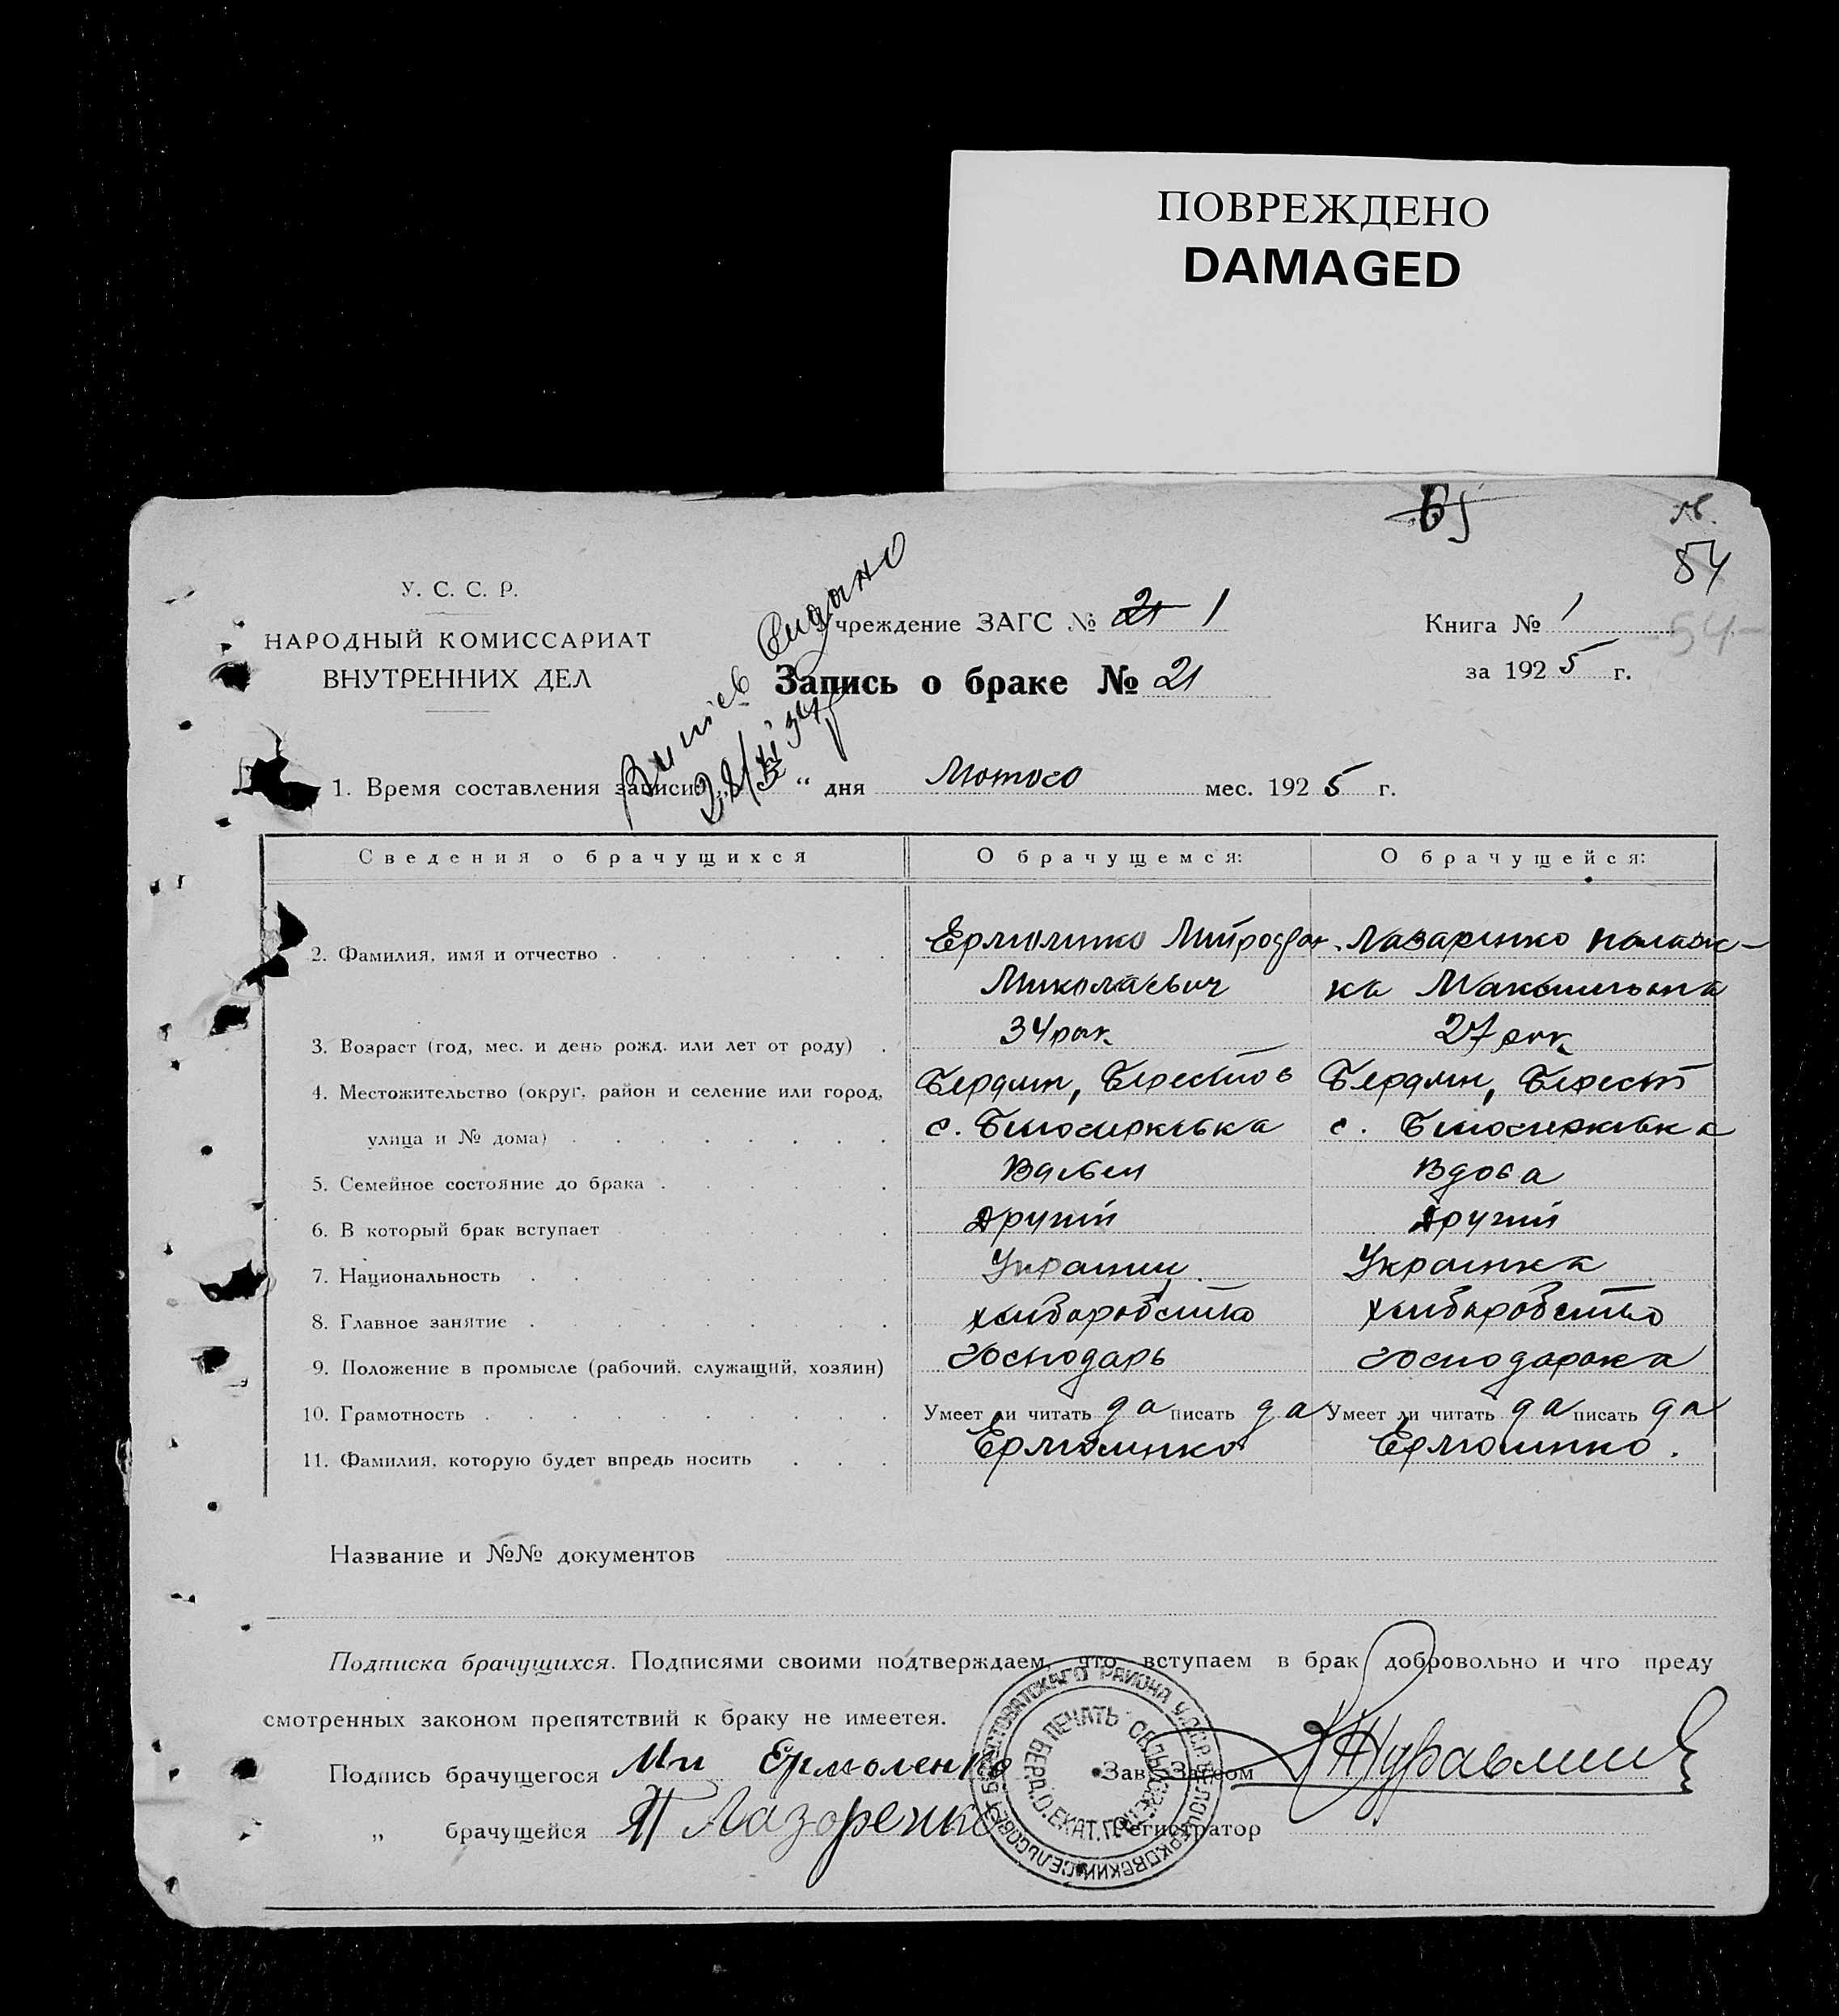 ПОВРЕЖДЕНО
DAMAGED
65
54
У. С. С. Р.
НАРОДНЫЙ КОМИССАРИАТ
ВНУТРЕННИХ ДЕЛ
Витяг видано
Учреждение ЗАГС № 21 1
Запись о браке № 21
Книга № 1
54
за 1925 г.
1. Время составления записи „ “ дня Лютого мес. 1925 г.
Сведения о брачущихся
О брачущемся:
О брачущейся:
2. Фамилия, имя и отчество
Ермоленко Митрофан
Миколаевич
Лазаренко Палаж-
ка Максимовна
3. Возраст (год, мес. и день рожд. или лет от роду)
34 рок
27 рок
4. Местожительство (округ, район и селение или город,
улица и № дома)
Бердян, Берестов
с. Билоцерковка
Бердян, Берест
с. Билоцерковка
5. Семейное состояние до брака
Вдовец
Вдова
6. В который брак вступает
Другий
Другий
7. Национальность
Украинец
Украинка
8. Главное занятие
хлиборобство
хлиборобство
9. Положение в промысле (рабочий, служащий, хозяин)
Господарь
господарка
10. Грамотность
Умеет ли читать да писать да
Умеет ли читать да писать да
11. Фамилия, которую будет впредь носить
Ермоленко
Ермоленко.
Название и №№ документов
Подписка брачущихся. Подписями своими подтверждаем, что вступаем в брак добровольно и что преду
смотренных законом препятствий к браку не имеется.
Подпись брачущегося Ми Ермоленко
„ брачущейся П Лазоренко
Зав. Загсом Журавлий
Регистратор